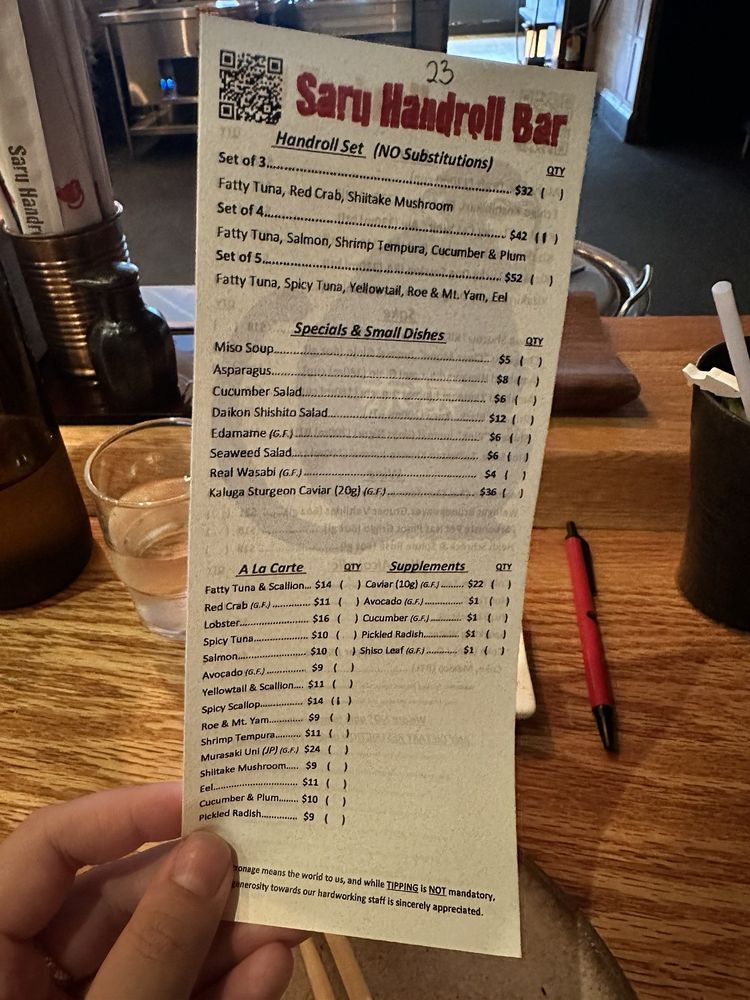 23
Saru Handroll Bar
Handroll Set (NO Substitutions)
QTY
Set of 3 $32 ( )
Fatty Tuna, Red Crab, Shiitake Mushroom
Set of 4 $42 ( )
Fatty Tuna, Salmon, Shrimp Tempura, Cucumber & Plum
Set of 5 $52 ( )
Fatty Tuna, Spicy Tuna, Yellowtail, Roe & Mt. Yam, Eel
Specials & Small Dishes
QTY
Miso Soup $5 ( )
Asparagus $8 ( )
Cucumber Salad $6 ( )
Daikon Shishito Salad $12 ( )
Edamame (G.F.) $6 ( )
Seaweed Salad $6 ( )
Real Wasabi (G.F.) $4 ( )
Kaluga Sturgeon Caviar (20g) (G.F.) $36 ( )
A La Carte QTY
Fatty Tuna & Scallion... $14 ( )
Red Crab (G.F.) $11 ( )
Lobster $16 ( )
Spicy Tuna $10 ( )
Salmon $10 ( )
Avocado (G.F.) $9 ( )
Yellowtail & Scallion.... $11 ( )
Spicy Scallop $14 ( )
Roe & Mt. Yam $9 ( )
Shrimp Tempura $11 ( )
Murasaki Uni (JP) (G.F.) $24 ( )
Shiitake Mushroom..... $9 ( )
Eel $11 ( )
Cucumber & Plum $10 ( )
Pickled Radish $9 ( )
Supplements QTY
Caviar (10g) (G.F.) $22 ( )
Avocado (G.F.) $1 ( )
Cucumber (G.F.) $1 ( )
Pickled Radish $1 ( )
Shiso Leaf (G.F.) $1 ( )
means the world to us, and while TIPPING is NOT mandatory,
towards our hardworking staff is sincerely appreciated.
Saru Handro